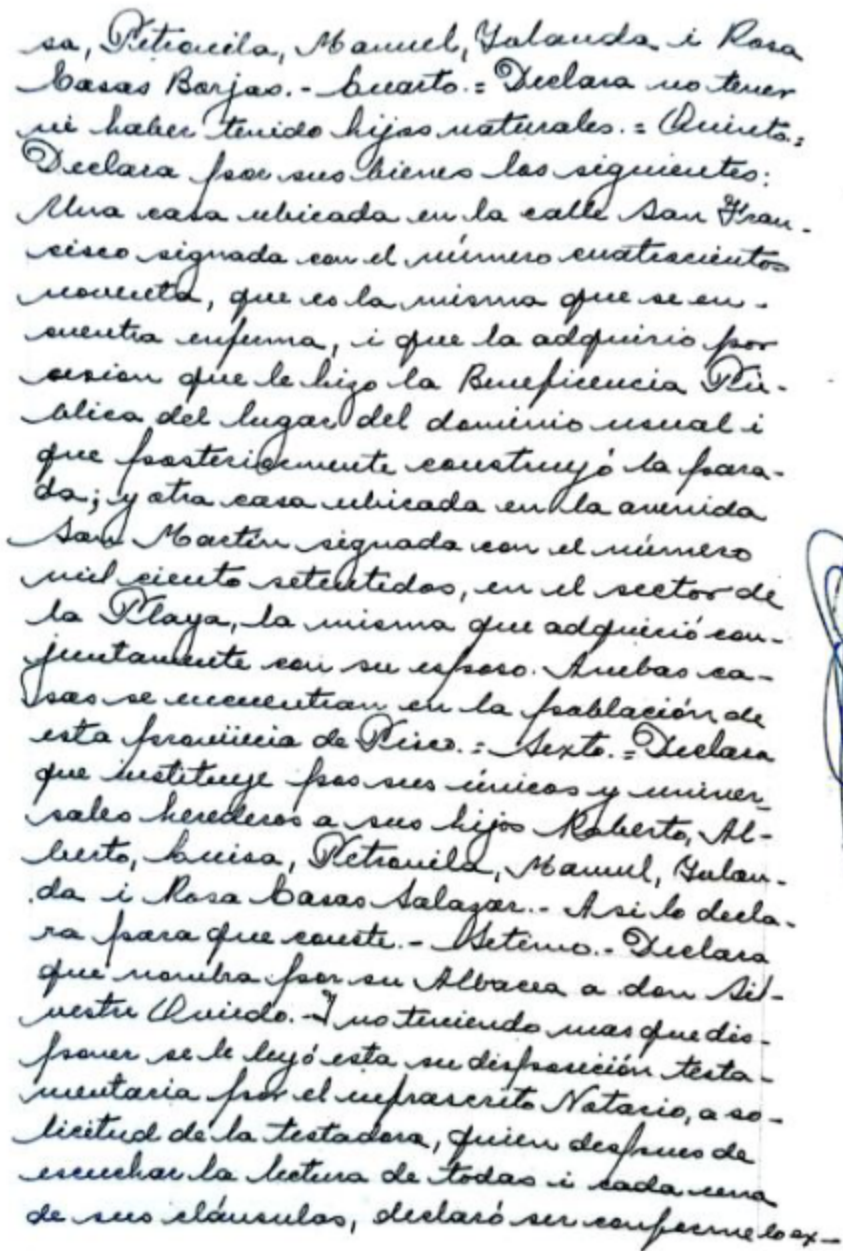 sa, Petronila, Manuel, Yolanda i Rosa
Casas Borjas.- Cuarto.= Declara no tener
ni haber tenido hijos naturales.= Quinto.=
Declara por sus bienes los siguientes:
Una casa ubicada en la calle San Fran-
cisco signada con el número cuatrocientos
noventa, que es la misma que se en-
cuentra enferma, i que la adquirio por
cesion que le hizo la Beneficencia Pú-
blica del lugar del dominio usual i
que posteriormente construyó la fara-
da; y otra casa ubicada en la avenida
San Martín signada con el número
mil ciento setentidos, en el sector de
la Playa, la misma que adquirió con-
juntamente con su esposo. Ambas ca-
sas se encuentran en la población de
esta provincia de Pisco.= Sexto.= Declara
que instituye por sus únicos y univer-
sales herederos a sus hijos Roberto, Al-
berto, Luisa, Petronila, Manuel, Yolan-
da i Rosa Casas Salazar.- Asi lo decla-
ra para que conste.- Setimo.- Declara
que nombra por su Albacea a don Sil-
vestre Oviedo.- I no teniendo mas que dis-
poner se le leyó esta su disposición testa-
mentaria por el infrascrito Notario, a so-
licitud de la testadora, quien despues de
escuchar la lectura de todas i cada una
de sus cláusulas, declaró ser conforme lo ex-